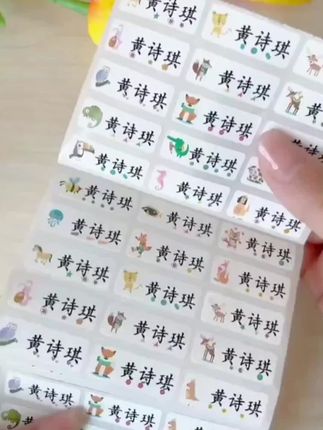 黄诗琪
黄诗琪
黄诗琪 黄诗琪
黄诗琪 黄诗琪
黄诗琪 黄诗琪
黄诗琪 黄诗琪
黄诗琪 黄诗琪 黄诗琪
黄诗琪 黄诗琪 黄诗琪
黄诗琪 黄诗琪 黄诗琪
黄诗琪 黄诗琪 黄诗琪
黄诗琪 黄诗琪 黄诗琪
黄诗琪 黄诗琪 黄诗琪